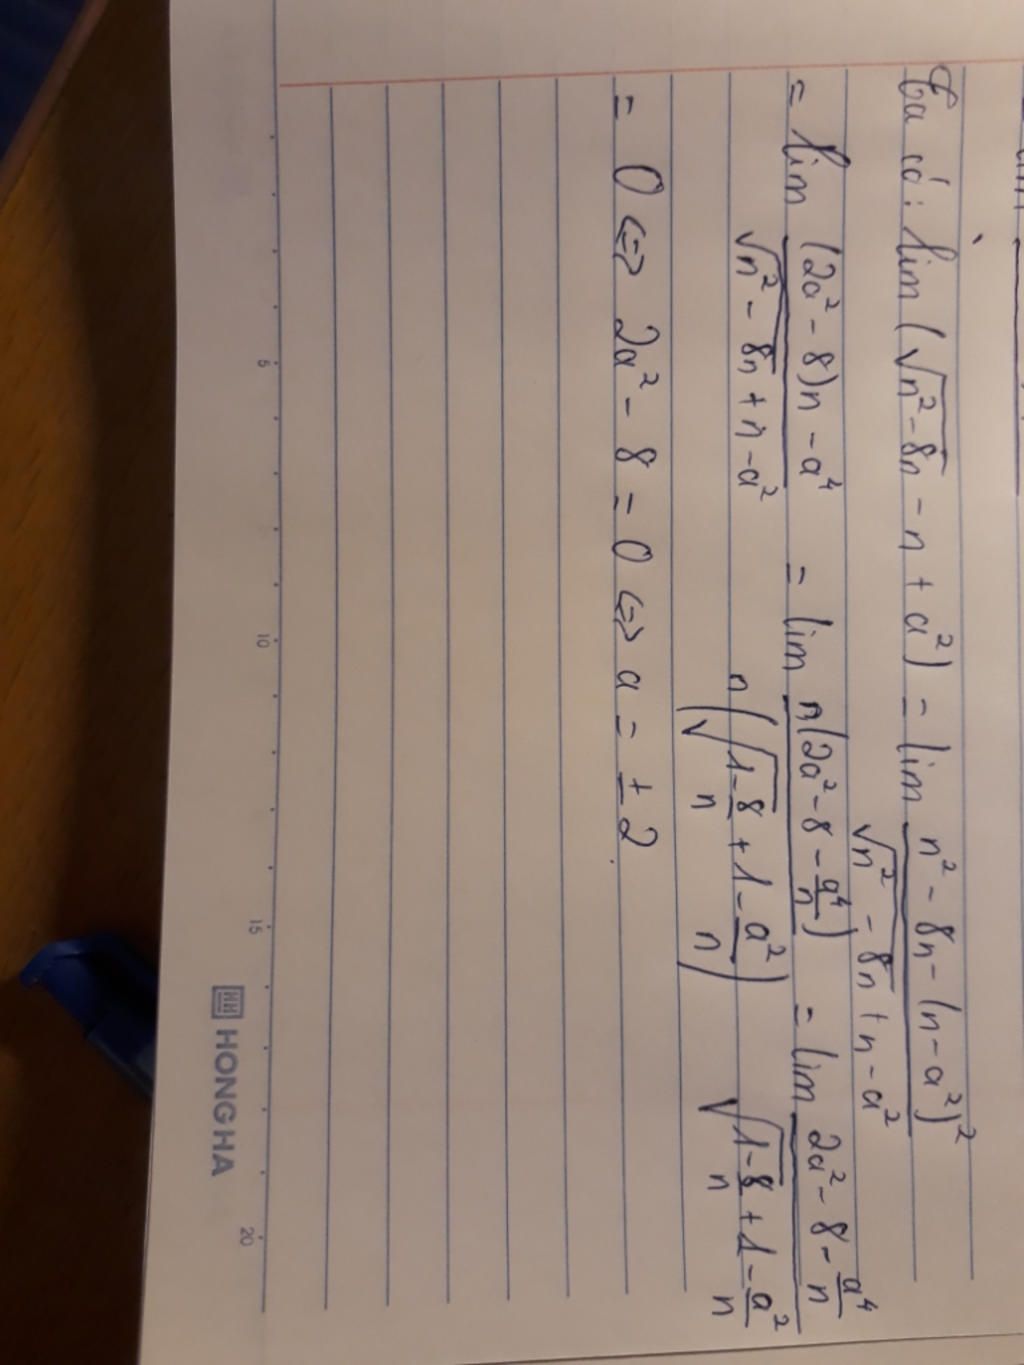 Ta có: lim (√(n² - 8n) - n + a²) = lim (n² - 8n - (n - a²)²)/(√(n² - 8n) + n - a²)
= lim ((2a² - 8)n - a⁴)/(√(n² - 8n) + n - a²) = lim (n(2a² - 8 - a⁴/n))/(n(√(1 - 8/n) + 1 - a²/n)) = lim (2a² - 8 - a⁴/n)/(√(1 - 8/n) + 1 - a²/n)
= 0 ⇔ 2a² - 8 = 0 ⇔ a = ± 2
5 10 15 20
HONGHA